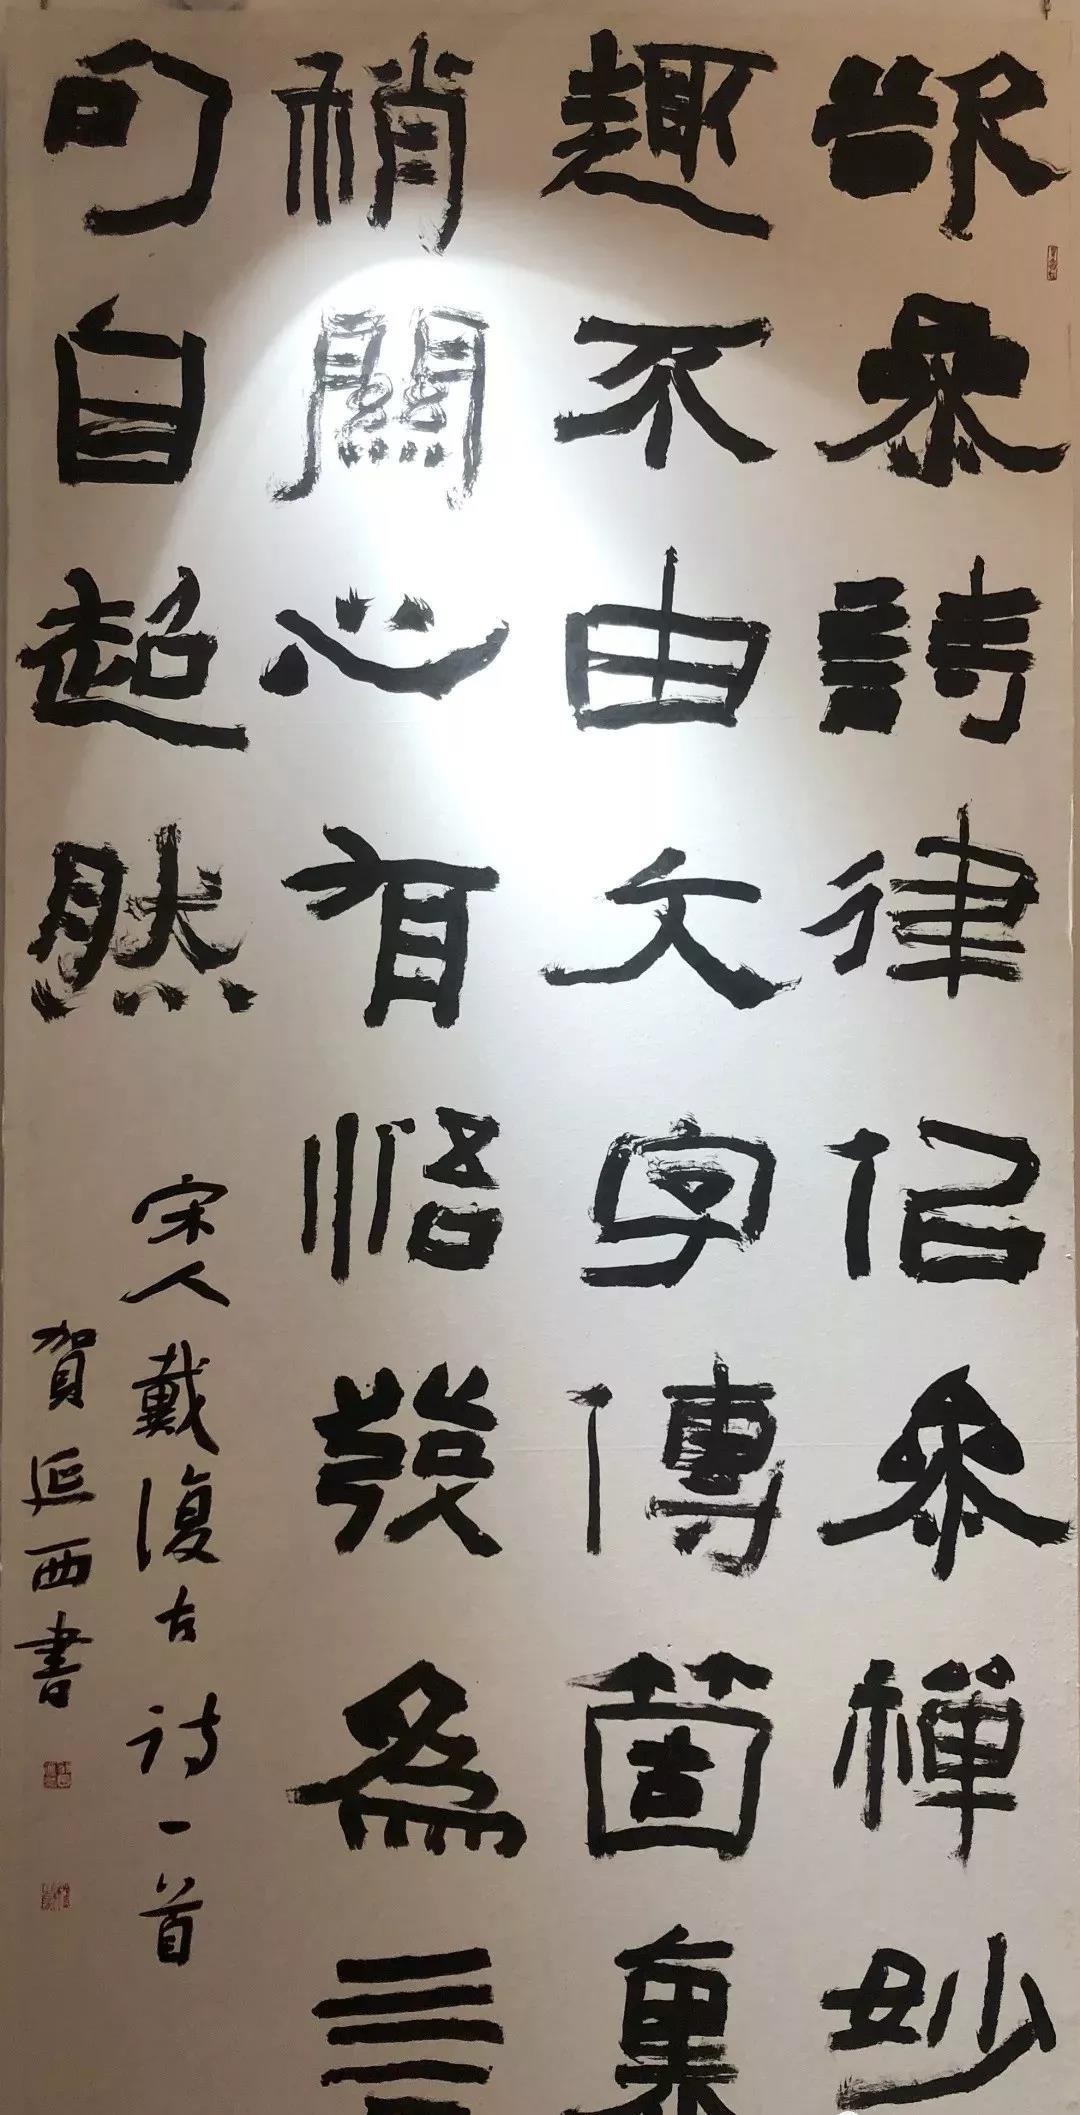 欲參詩律佀參禪妙
趣不由文字傳箇裏
稍關心有悟發為言
句自超然
宋人戴復古诗一首
賀延西書